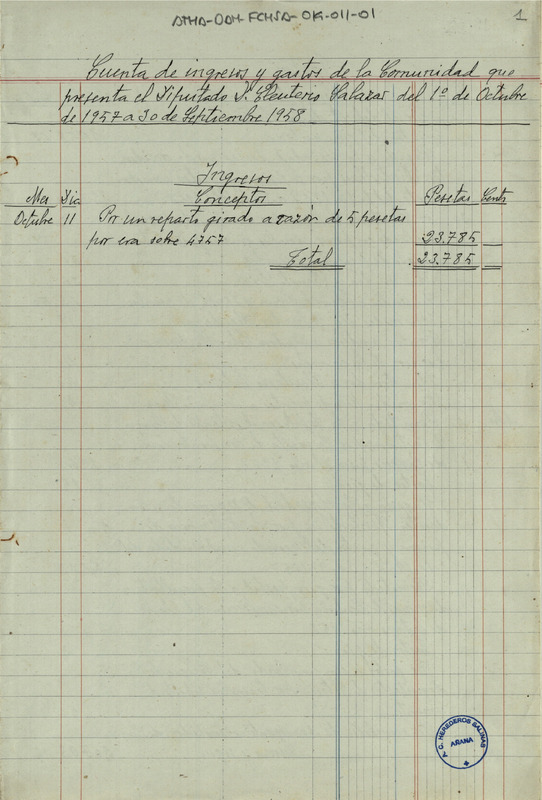 ATHA-DAH-FCHSA-OK-011-01
1
Cuenta de ingresos y gastos de la Comunidad que
presenta el Diputado D. Eleuterio Salazar del 1º de Octubre
de 1957 a 30 de Septiembre 1958
Ingresos
Mes Dia Conceptos Pesetas Cents
Octubre 11 Por un reparto girado a razón de 5 pesetas
por era sobre 4757 23.785
Total 23.785
C. HEREDEROS SALINAS
AÑANA